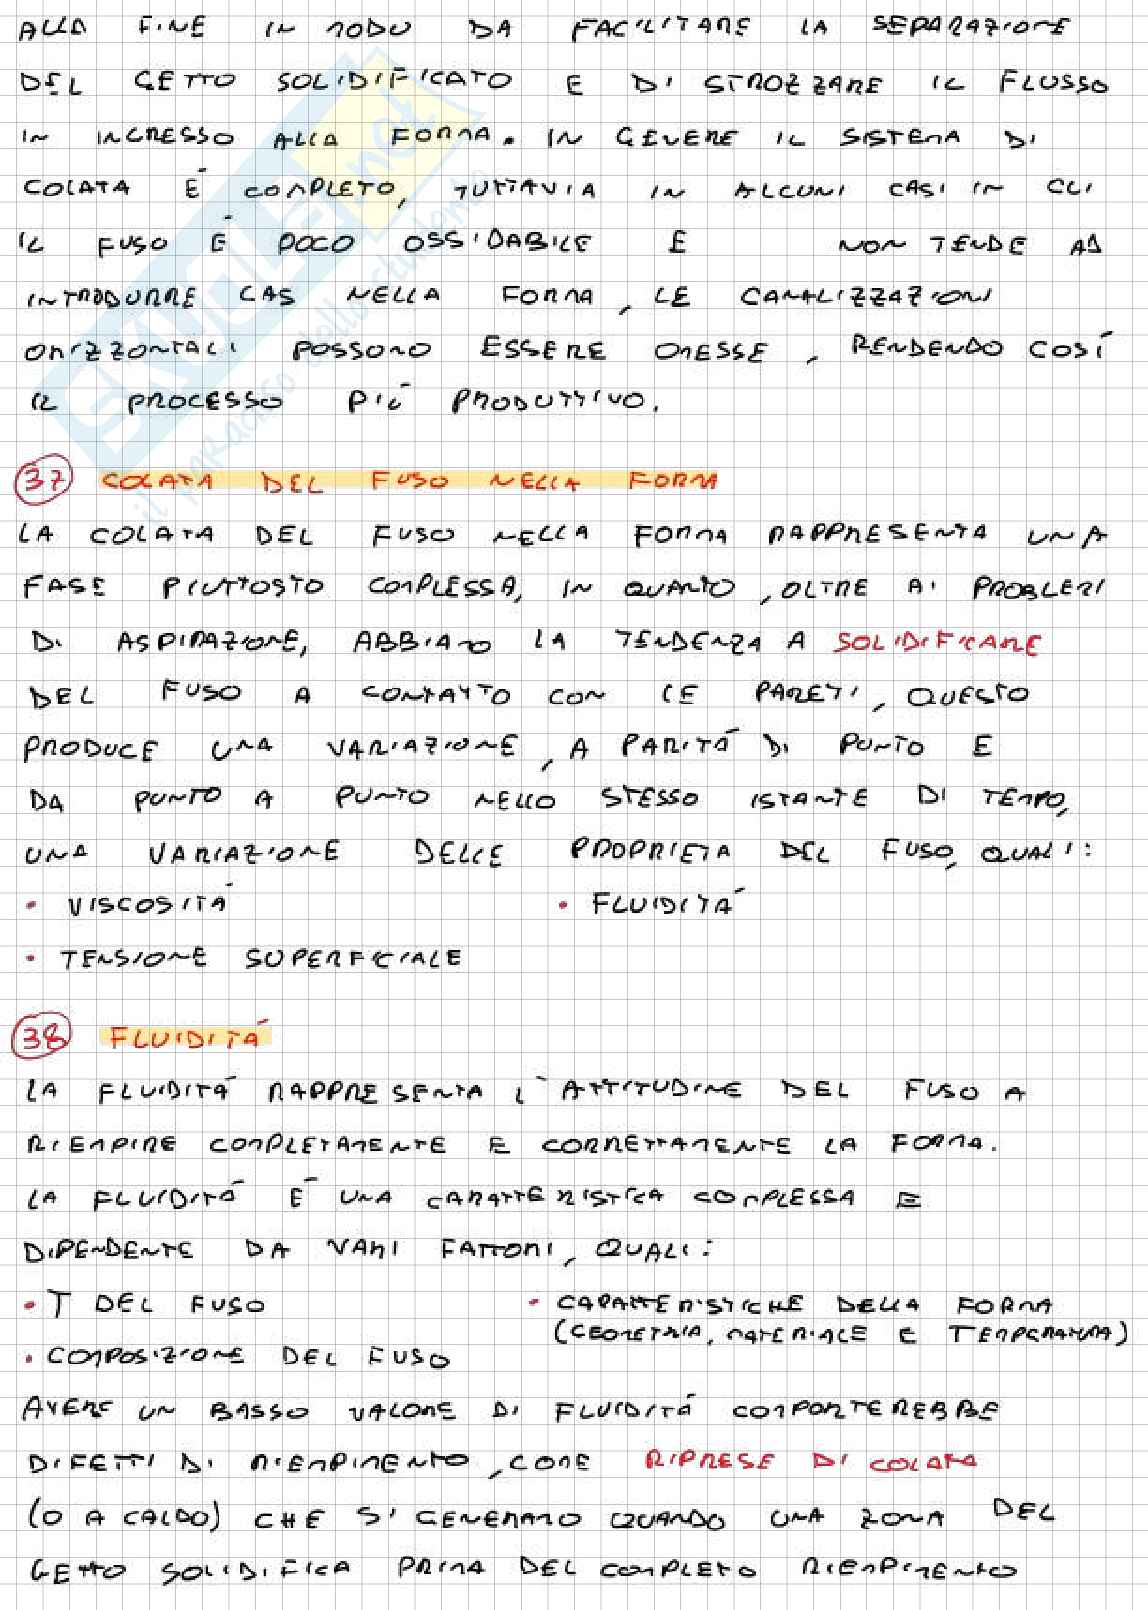 ALLA FINE IN MODO DA FACILITARE LA SEPARAZIONE
DEL GETTO SOLIDIFICATO E DI STROZZARE IL FLUSSO
IN INGRESSO ALLA FORMA. IN GENERE IL SISTEMA DI
COLATA É COMPLETO, TUTTAVIA IN ALCUNI CASI IN CUI
IL FUSO É POCO OSSIDABILE E NON TENDE AD
INTRODURRE GAS NELLA FORMA, LE CANALIZZAZIONI
ORIZZONTALI POSSONO ESSERE OMESSE, RENDENDO COSÍ
IL PROCESSO PIÚ PRODUTTIVO.
37 COLATA DEL FUSO NELLA FORMA
LA COLATA DEL FUSO NELLA FORMA RAPPRESENTA UNA
FASE PIUTTOSTO COMPLESSA, IN QUANTO, OLTRE AI PROBLEMI
DI ASPIRAZIONE, ABBIAMO LA TENDENZA A SOLIDIFICARE
DEL FUSO A CONTATTO CON LE PARETI, QUESTO
PRODUCE UNA VARIAZIONE, A PARITÁ DI PUNTO E
DA PUNTO A PUNTO NELLO STESSO ISTANTE DI TEMPO,
UNA VARIAZIONE DELLE PROPRIETA DEL FUSO, QUALI:
• VISCOSITÁ • FLUIDITÁ
• TENSIONE SUPERFICIALE
38 FLUIDITÁ
LA FLUIDITÁ RAPPRESENTA L'ATTITUDINE DEL FUSO A
RIEMPIRE COMPLETAMENTE E CORRETTAMENTE LA FORMA.
LA FLUIDITÁ É UNA CARATTERISTICA COMPLESSA E
DIPENDENTE DA VARI FATTORI, QUALI:
• T DEL FUSO • CARATTERISTICHE DELLA FORMA
(GEOMETRIA, MATERIALE E TEMPERATURA)
• COMPOSIZIONE DEL FUSO
AVERE UN BASSO VALORE DI FLUIDITÁ COMPORTEREBBE
DIFETTI DI RIEMPIMENTO, COME RIPRESE DI COLATA
(O A CALDO) CHE SI GENERANO QUANDO UNA ZONA DEL
GETTO SOLIDIFICA PRIMA DEL COMPLETO RIEMPIMENTO
SKUOLA.net
il paradiso dello studente